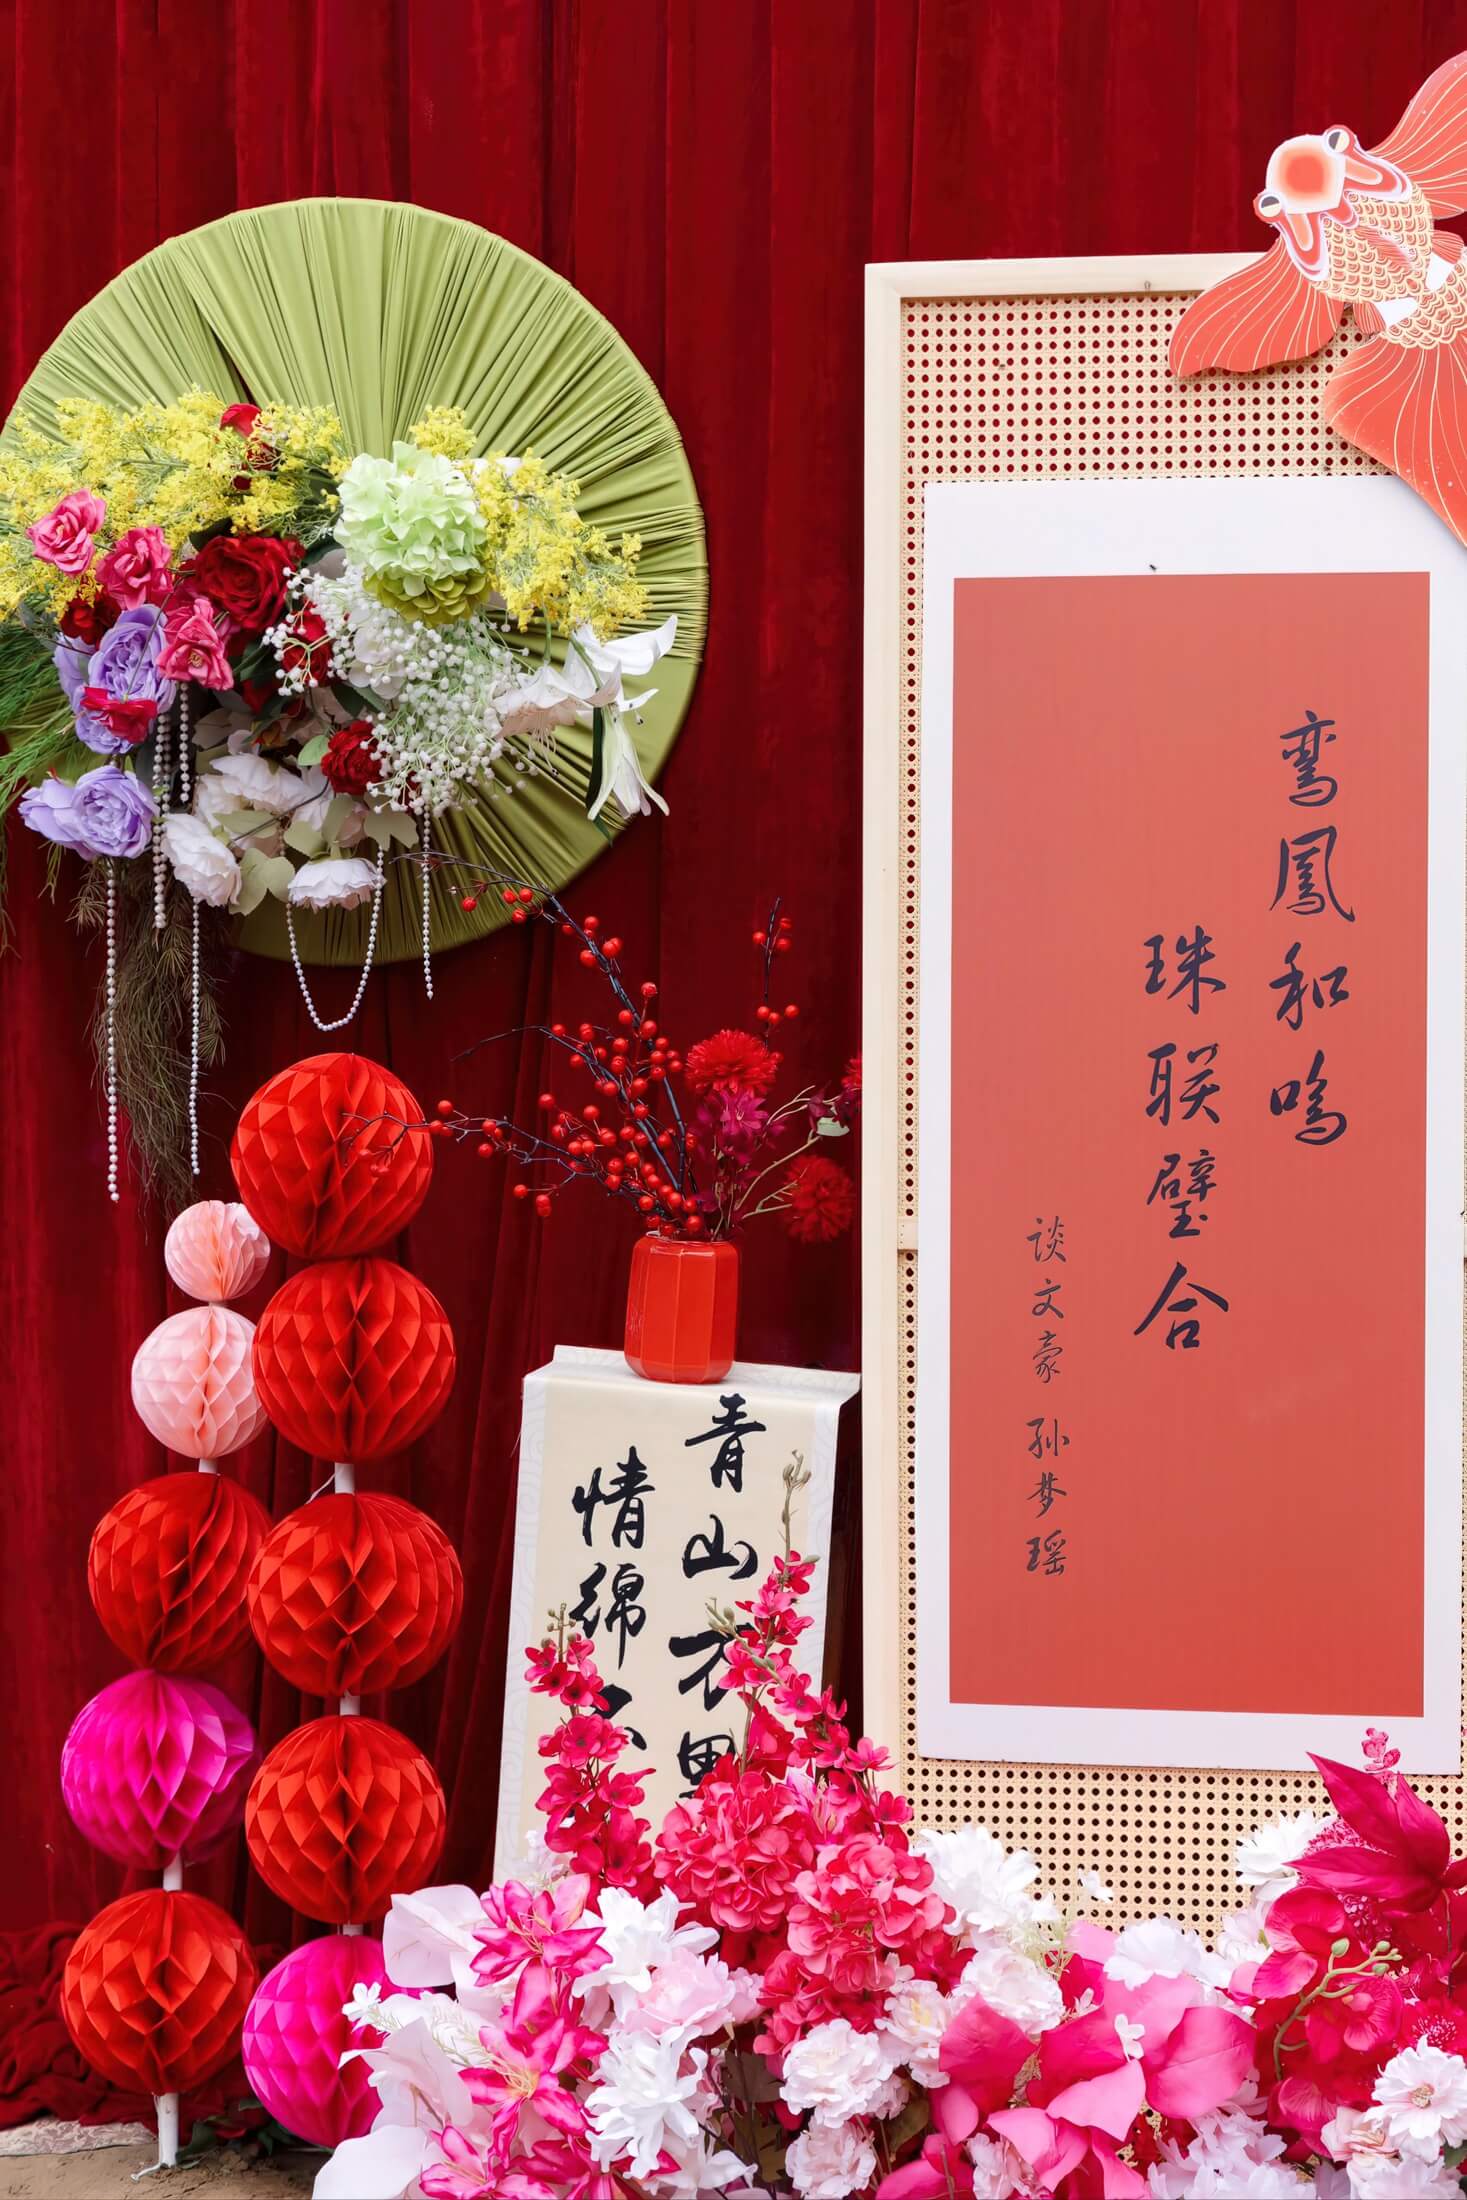 鸾鳳和鸣
珠联璧合
谈文豪 孙梦瑶
青山衣
情绵